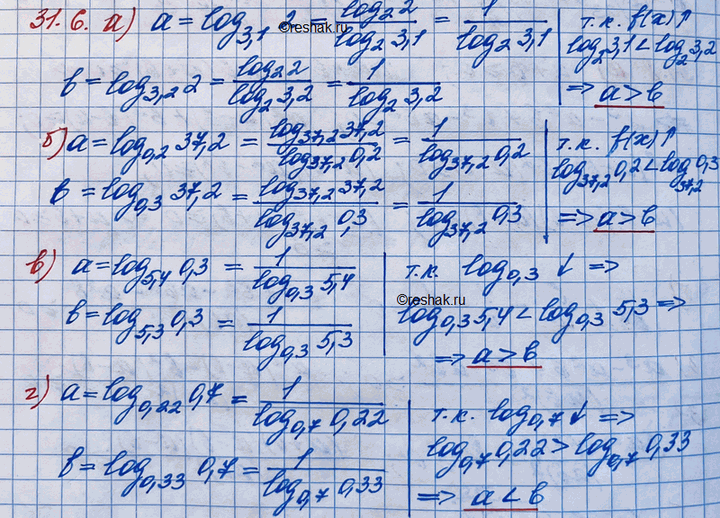 31.6. а) a = log_{3,1} 2 = \frac{log_2 2}{log_2 3,1} = \frac{1}{log_2 3,1} | т.к. f(x)↑
log_2 3,1 < log_2 3,2
b = log_{3,2} 2 = \frac{log_2 2}{log_2 3,2} = \frac{1}{log_2 3,2} | => a > b
б) a = log_{0,2} 37,2 = \frac{log_{37,2} 37,2}{log_{37,2} 0,2} = \frac{1}{log_{37,2} 0,2} | т.к. f(x)↑
log_{37,2} 0,2 < log_{37,2} 0,3
b = log_{0,3} 37,2 = \frac{log_{37,2} 37,2}{log_{37,2} 0,3} = \frac{1}{log_{37,2} 0,3} | => a > b
в) a = log_{5,4} 0,3 = \frac{1}{log_{0,3} 5,4} | т.к. log_{0,3} ↓ =>
©reshak.ru
b = log_{5,3} 0,3 = \frac{1}{log_{0,3} 5,3} | log_{0,3} 5,4 < log_{0,3} 5,3 =>
=> a > b
г) a = log_{0,22} 0,7 = \frac{1}{log_{0,7} 0,22} | т.к. log_{0,7} ↓ =>
log_{0,7} 0,22 > log_{0,7} 0,33
b = log_{0,33} 0,7 = \frac{1}{log_{0,7} 0,33} | => a < b
©reshak.ru